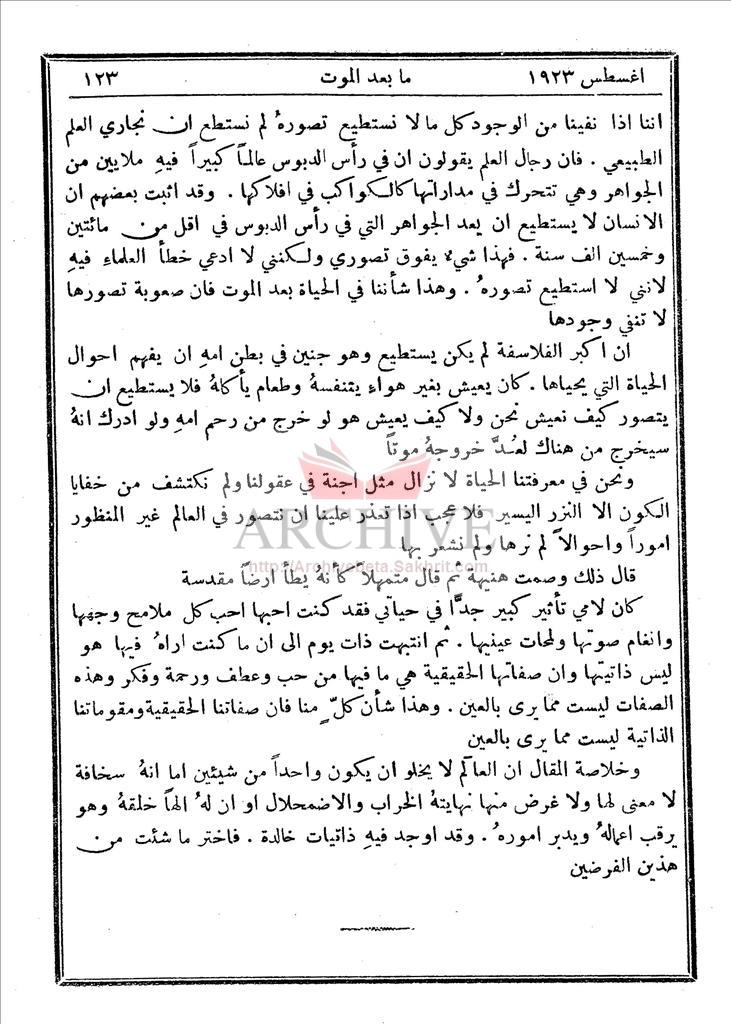 اغسطس ١٩٢٣ ما بعد الموت ١٢٣
اننا اذا نفينا من الوجود كل ما لا نستطيع تصورهُ لم نستطع ان نجاري العلم
الطبيعي . فان رجال العلم يقولون ان في رأس الدبوس عالماً كبيراً فيهِ ملايين من
الجواهر وهي تتحرك في مداراتها كالكواكب في افلاكها . وقد اثبت بعضهم ان
الانسان لا يستطيع ان يعد الجواهر التي في رأس الدبوس في اقل من مائتين
وخمسين الف سنة . فهذا شيءٌ يفوق تصوري ولكنني لا ادعي خطأَ العلماءِ فيهِ
لانني لا استطيع تصورهُ . وهذا شأننا في الحياة بعد الموت فان صعوبة تصورها
لا تنفي وجودها
ان اكبر الفلاسفة لم يكن يستطيع وهو جنين في بطن امهِ ان يفهم احوال
الحياة التي يحياها . كان يعيش بغير هواءٍ يتنفسهُ وطعام يأكلهُ فلا يستطيع ان
يتصور كيف نعيش نحن ولا كيف يعيش هو لو خرج من رحم امهِ ولو ادرك انهُ
سيخرج من هناك لعُدَّ خروجهُ موتاً
ونحن في معرفتنا الحياة لا نزال مثل اجنة في عقولنا ولم نكتشف من خفايا
الكون الا النزر اليسير فلا عجب اذا تعذر علينا ان نتصور في العالم غير المنظور
اموراً واحوالاً لم نرها ولم نشعر بها
ARCHIVE
http://Archivebeta.Sakhrit.com
قال ذلك وصمت هنيهة ثم قال متمهلاً كأنهُ يطأ ارضاً مقدسة
كان لامي تأثير كبير جدًّا في حياتي فقد كنت احبها احب كل ملامح وجهها
وانغام صوتها ولمحات عينيها . ثم انتبهت ذات يوم الى ان ما كنت اراهُ فيها هو
ليس ذاتيتها وان صفاتها الحقيقية هي ما فيها من حب وعطف ورحمة وفكر وهذه
الصفات ليست مما يرى بالعين . وهذا شأن كلٍّ منا فان صفاتنا الحقيقية ومقوماتنا
الذاتية ليست مما يرى بالعين
وخلاصة المقال ان العالم لا يخلو ان يكون واحداً من شيئين اما انهُ سخافة
لا معنى لها ولا غرض منها نهايتهُ الخراب والاضمحلال او ان لهُ الهاً خلقهُ وهو
يرقب اعمالهُ ويدبر امورهُ . وقد اوجد فيهِ ذاتيات خالدة . فاختر ما شئت من
هذين الفرضين